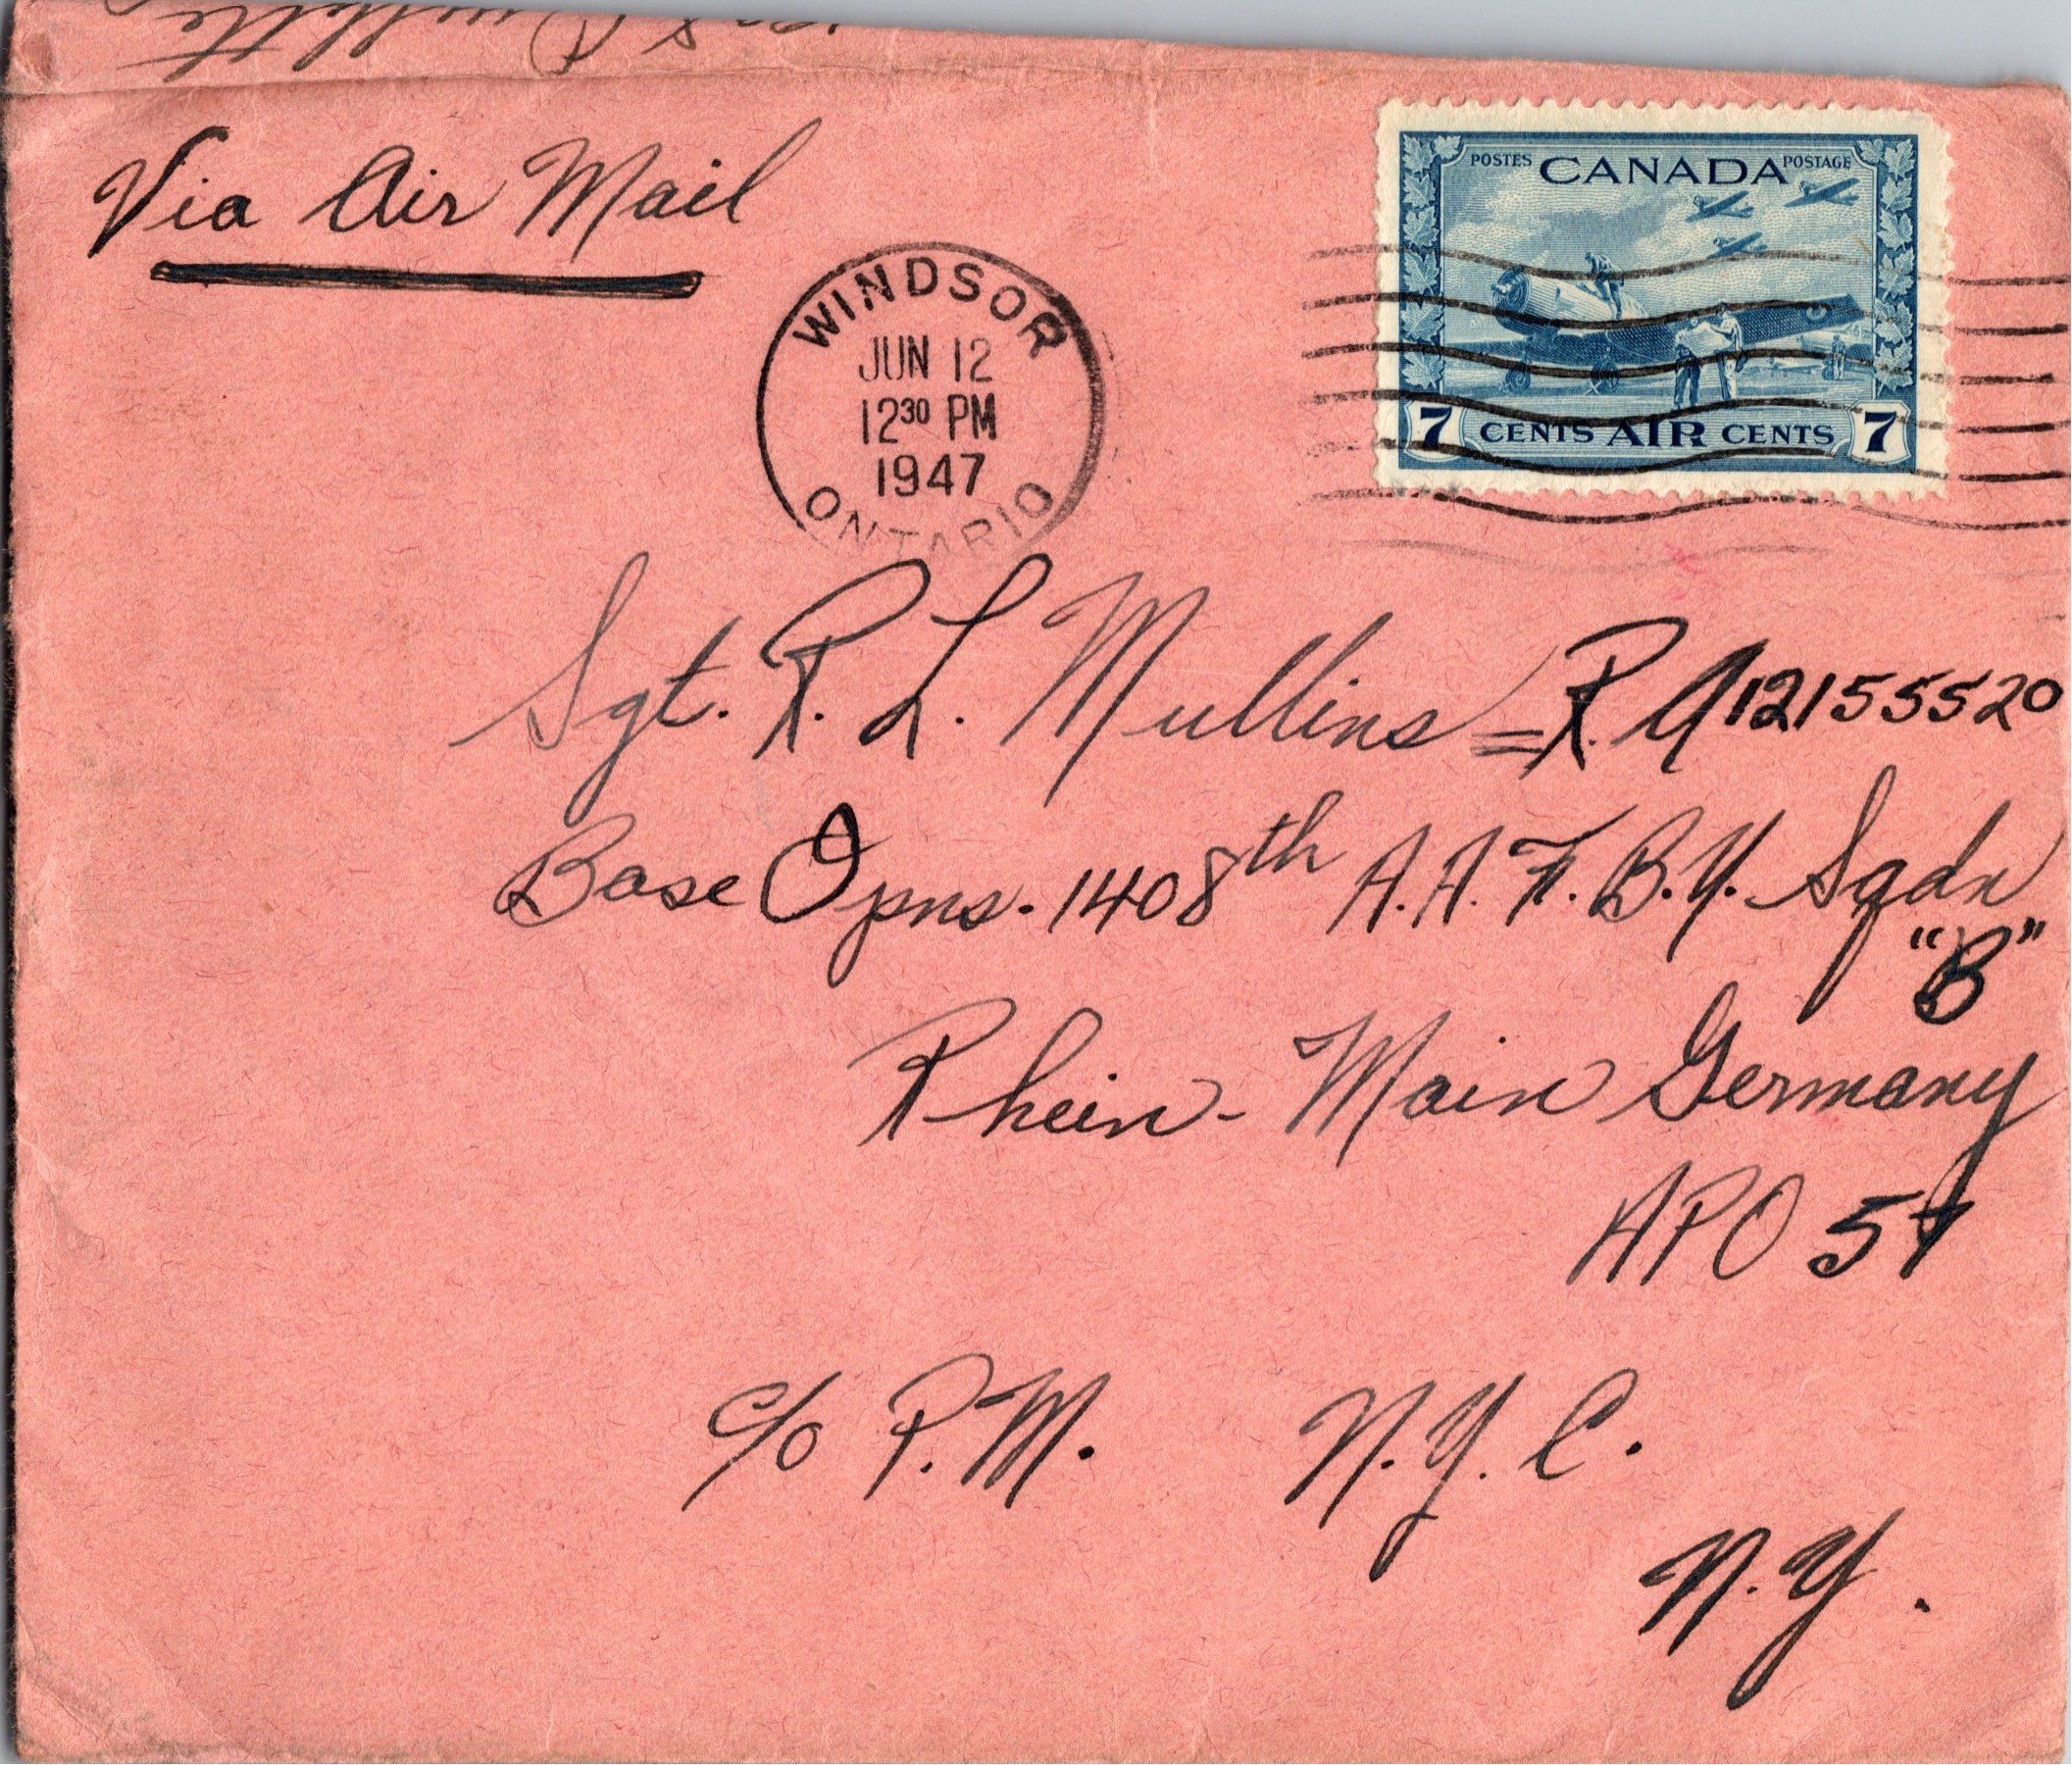 Via Air Mail
WINDSOR
JUN 12
12³⁰ PM
1947
ONTARIO
POSTES CANADA POSTAGE
7 CENTS AIR CENTS 7
Sgt. R. L. Mullins = R.A 12155520
Base Opns. 1408th A.A.F.B.U. Sqdn
"B"
Rhein-Main Germany
APO 57
c/o P.M. N.Y.C.
N.Y.